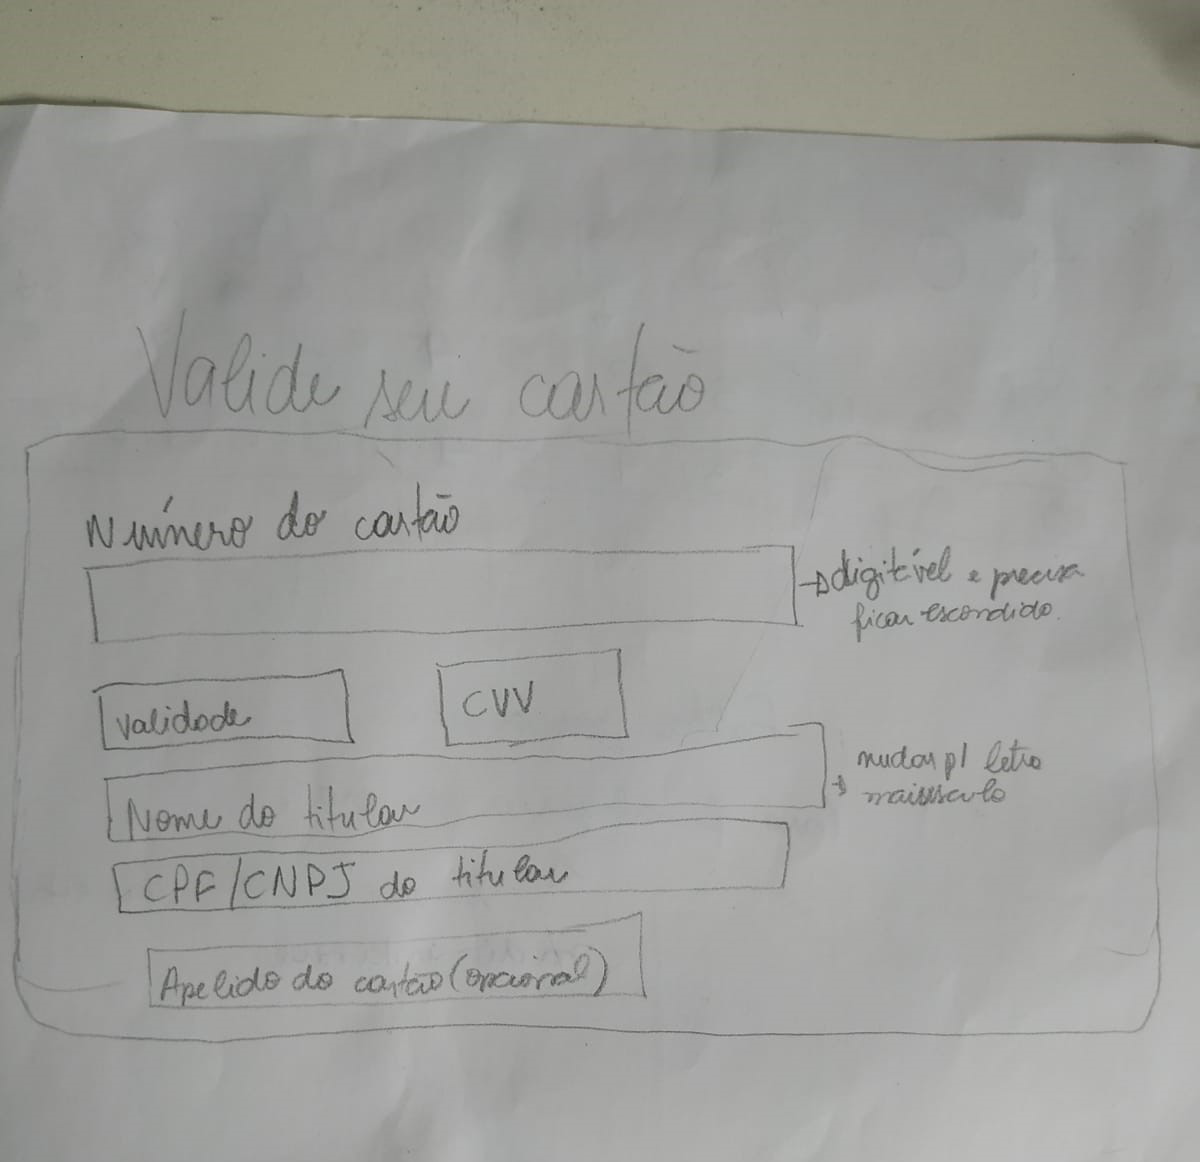 Valide seu cartão
Número do cartão
digitável e precisa
ficar escondido.
Validade
CVV
Nome do titular
mudar p/ letra
maiúscula
CPF/CNPJ do titular
Apelido do cartão (opcional)